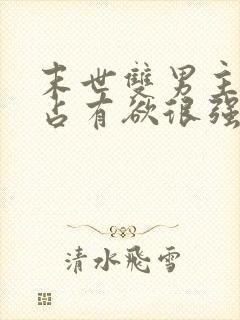 末世雙男主
占有欲很強
清水飛雪